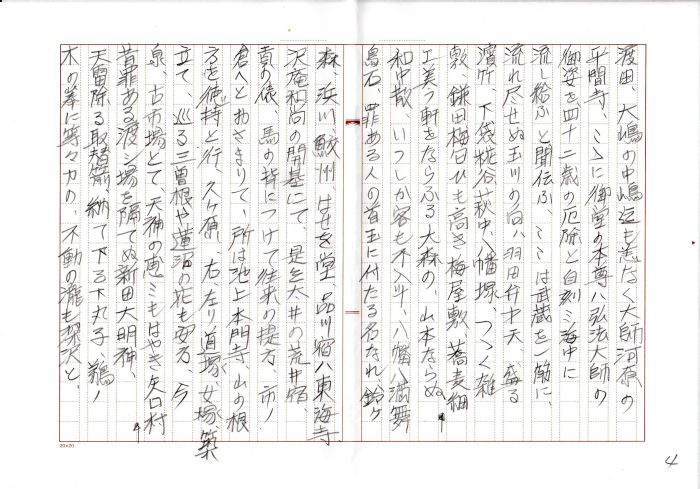 渡田、大嶋の中嶋迄も恙なく大師河原の
平間寺、こゝに御堂の本尊ハ弘法大師の
御姿を四十二歳の厄除と自刻ミ海中に
流し給ふと聞伝ふ、こゝは武蔵を一筋に、
流れ尽せぬ玉川の向ハ羽田弁才天、盛る
濱竹、下袋、糀谷、萩中、八幡塚、つゝく雑
敷、鎌田梅日ひも高き梅屋敷、蕎麦細
工美つ軒をならふる大森の、山本ならぬ
和中散、いつしか客も不入斗、八幡ハ満舞
鳥石、罪ある人の首玉に付たる名なれ鈴ヶ
森、浜川、鮫州、はせを堂、品川宿ハ東海寺、
沢庵和尚の開基にて、是を大井の荒井宿、
貢の俵、馬の背につけて往来の提方、市ノ
倉へとおさまりて、所は池上本門寺、山の根
方を徳持と行、久ヶ原、右左り道塚、女塚、築
立て、巡る三曽根や蓮沼の花も安方、今
泉、古市場とて、天神の恵ミもはやき矢口村
昔罪ある渡シ場を隔てぬ新田大明神、
天雷除る取替箭、納て下る下丸子、鵜ノ
木の峯に等々力の、不動の瀧も深沢と、
20×20
4